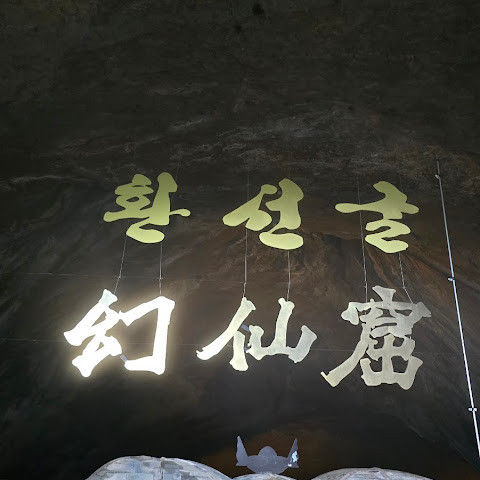 환선굴
幻仙窟